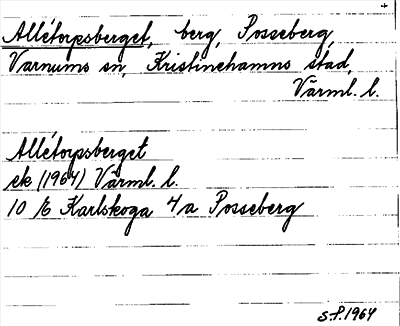 Allétorpsberget, berg, Posseberg,
Varnums sn, Kristinehamns stad,
Värml. l.
Allétorpsberget
ek (1964) Värml. l.
10 E Karlskoga 4a Posseberg
S.P. 1964